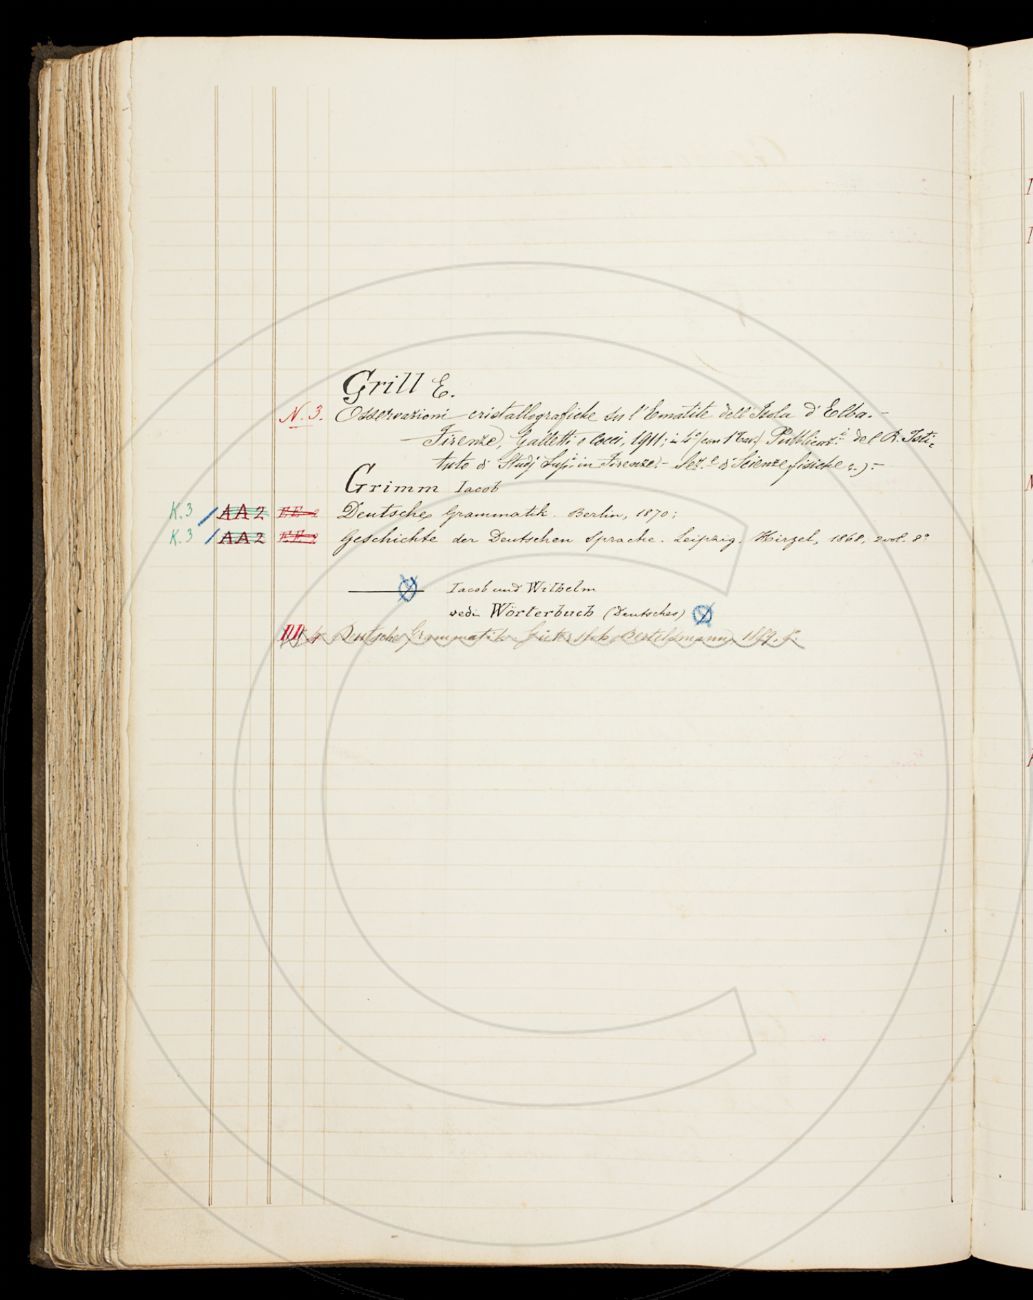 Grill E.
N. 3. Osservazioni cristallografiche su l'Ematite dell'Isola d'Elba. –
– Firenze, Galletti e Cocci, 1911; in 4° Pubblicaz.i del R. Isti-
tuto di Studj Sup.i in Firenze. – Sez.e di Scienze fisiche
Grimm Iacob
K. 3 AA 2 EE 2 Deutsche Grammatik. Berlin, 1870;
K. 3 AA 2 EE 2 Geschichte der Deutschen Sprache. Leipzig. Hirzel, 1868, 2 vol. 8°
Iacob und Wilhelm
vedi Wörterbuch (Deutsches)
III Deutsche Grammatik